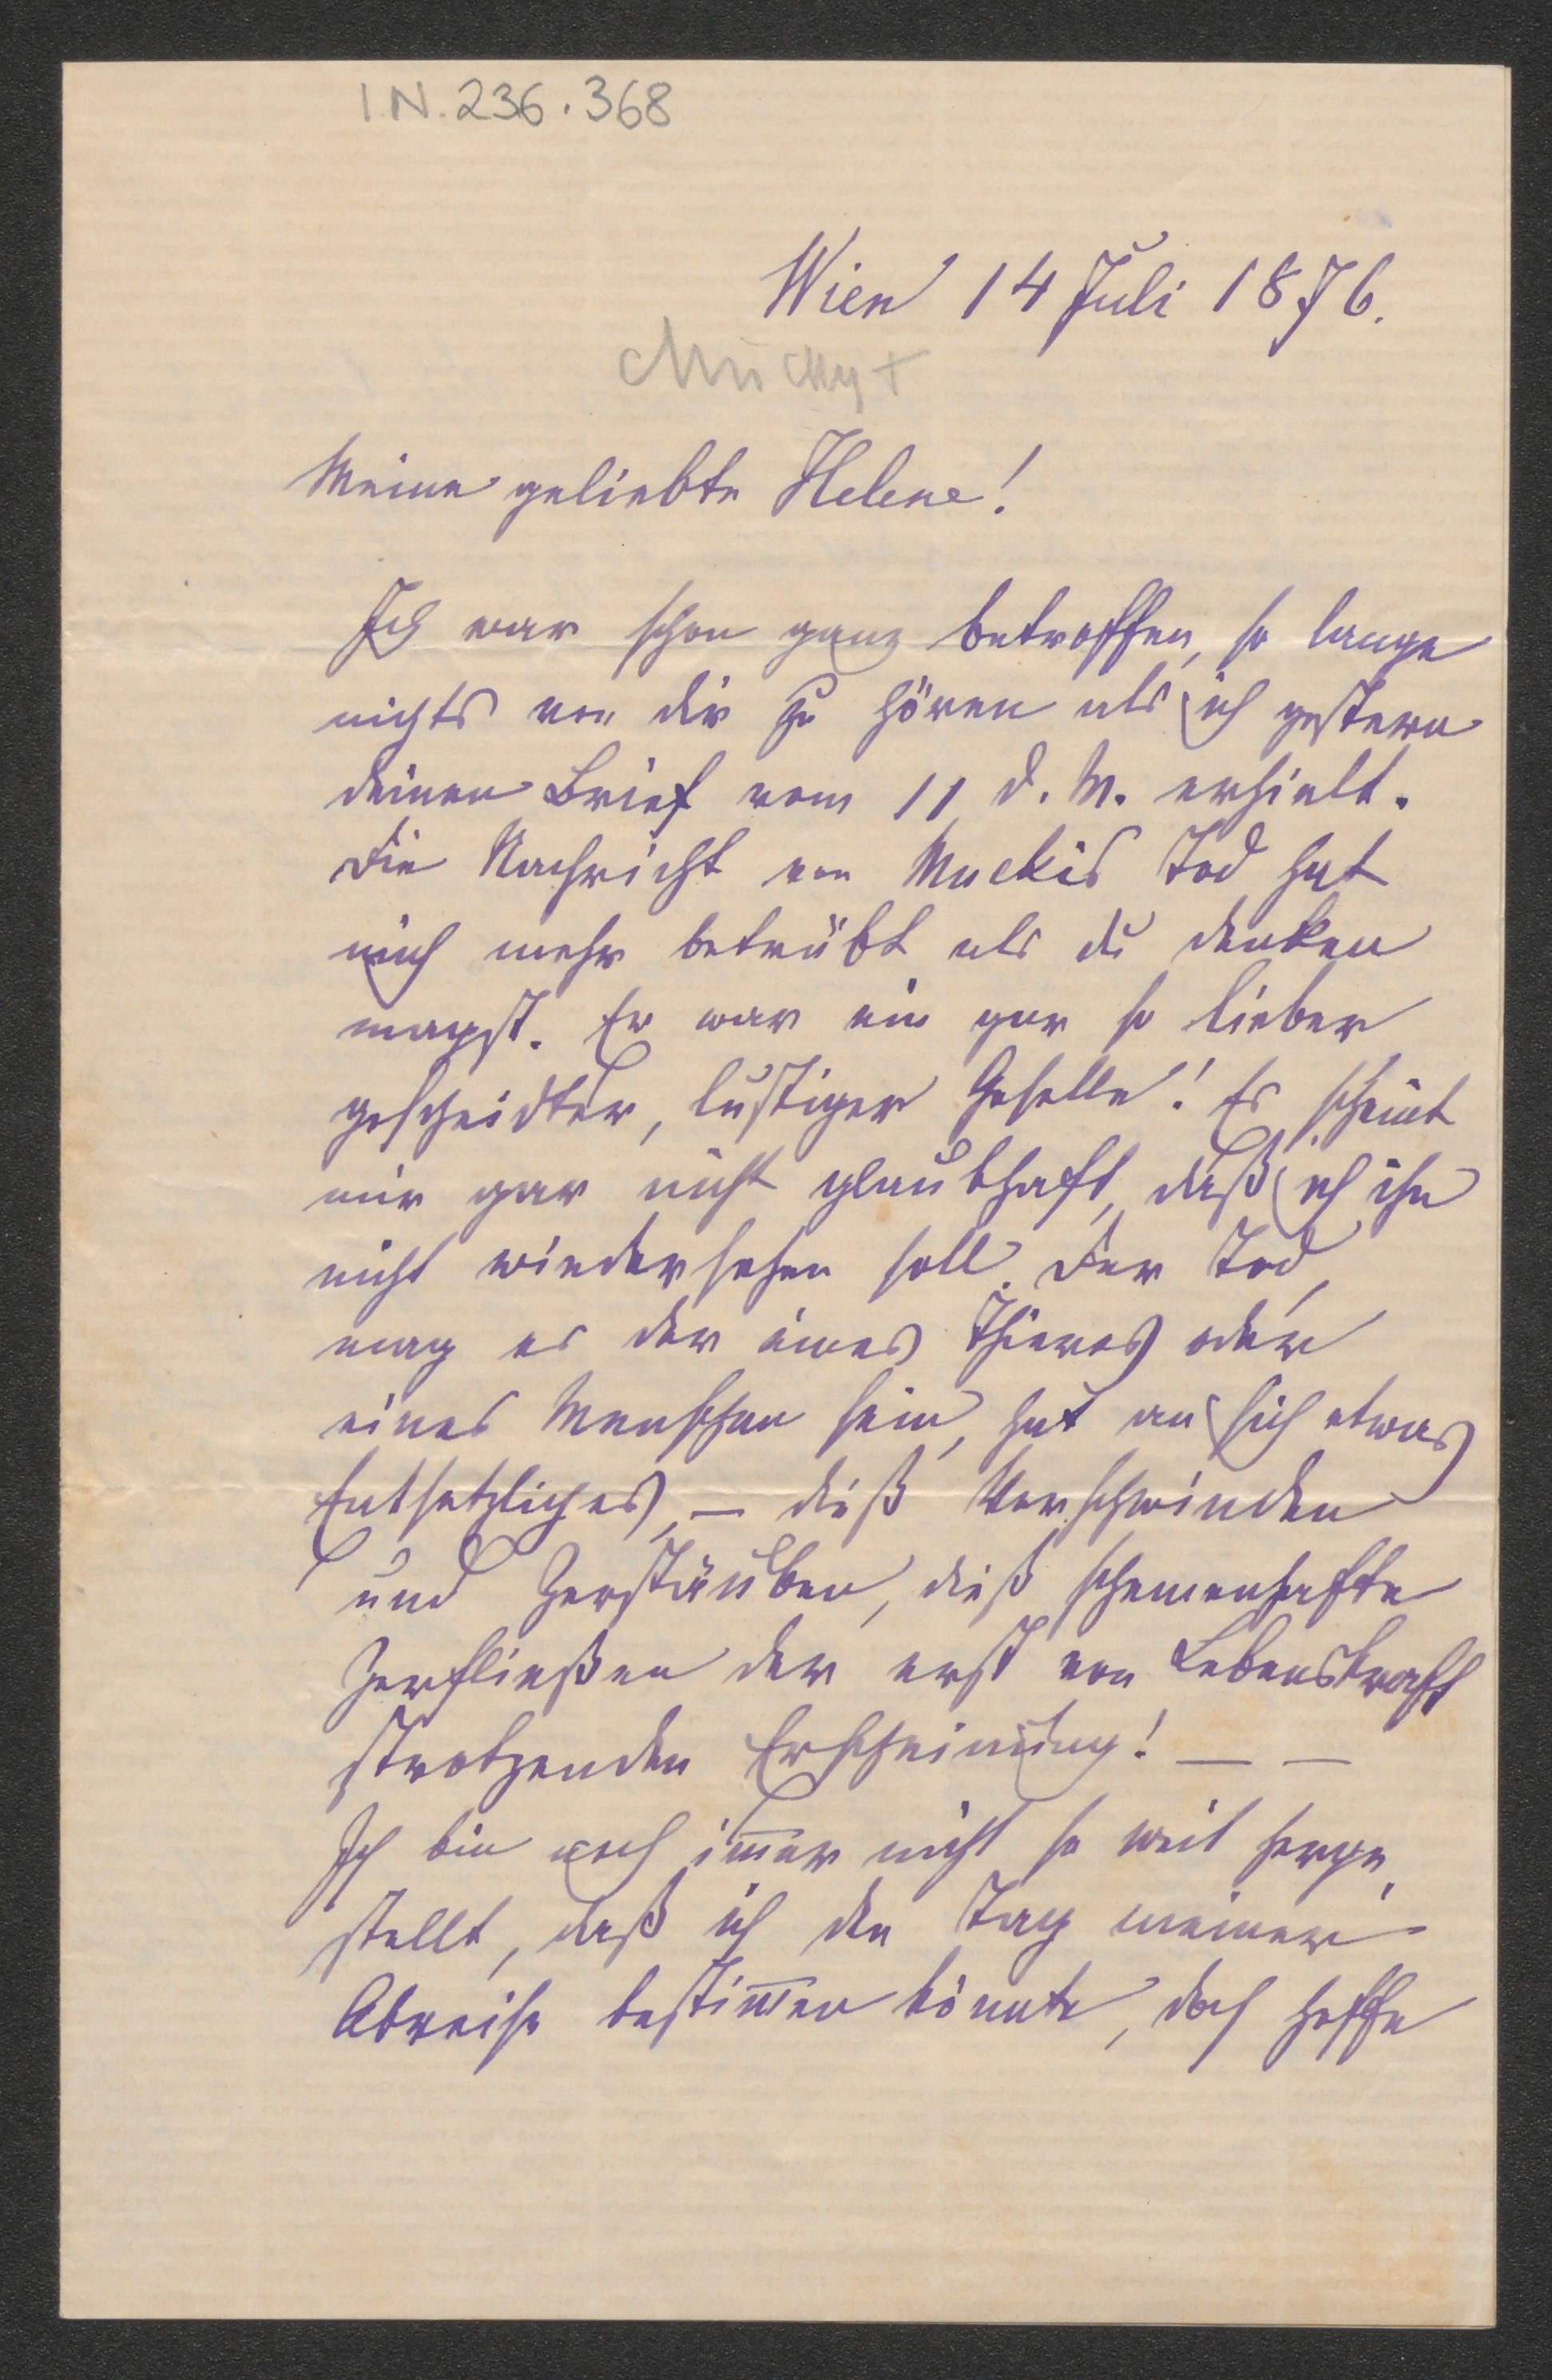 I.N. 236.368
Wien 14 Juli 1876.
Mucky +
Meine geliebte Helene!
Ich war schon ganz betroffen, so lange
nichts von dir zu hören als ich gestern
deinen Brief vom 11 d. M. erhielt.
Die Nachricht von Muckis Tod hat
mich mehr betrübt als du denken
magst. Er war ein gar so lieber
gescheidter, lustiger Geselle! Es scheint
mir gar nicht glaubhaft, daß ich ihn
nicht wiedersehen soll. Der Tod,
mag es der eines Thieres oder
eines Menschen sein, hat an sich etwas
Entsetzliches, – dieß Verschwinden
und Zerstäuben, dieß schemenhafte
Zerfließen der erst von Lebenskraft
strotzenden Erscheinung! – –
Ich bin noch im̅er nicht so weit herge,
stellt, daß ich den Tag meiner
Abreise bestim̅en könnte, doch hoffe